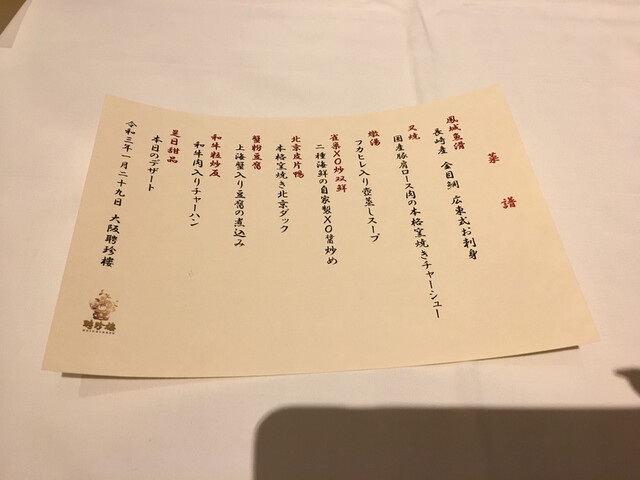 菜譜
鳳城魚滑
長崎産 金目鯛 広東式お刺身
叉焼
国産豚肩ロース肉の本格窯焼きチャーシュー
燉湯
フカヒレ入り壺蒸しスープ
雀巣XO炒双鮮
二種海鮮の自家製XO醤炒め
北京皮片鴨
本格窯焼き北京ダック
蟹粉豆腐
上海蟹入り豆腐の煮込み
和牛粒炒反
和牛肉入りチャーハン
是日甜品
本日のデザート
令和三年一月二十九日 大阪聘珍樓
聘珍樓